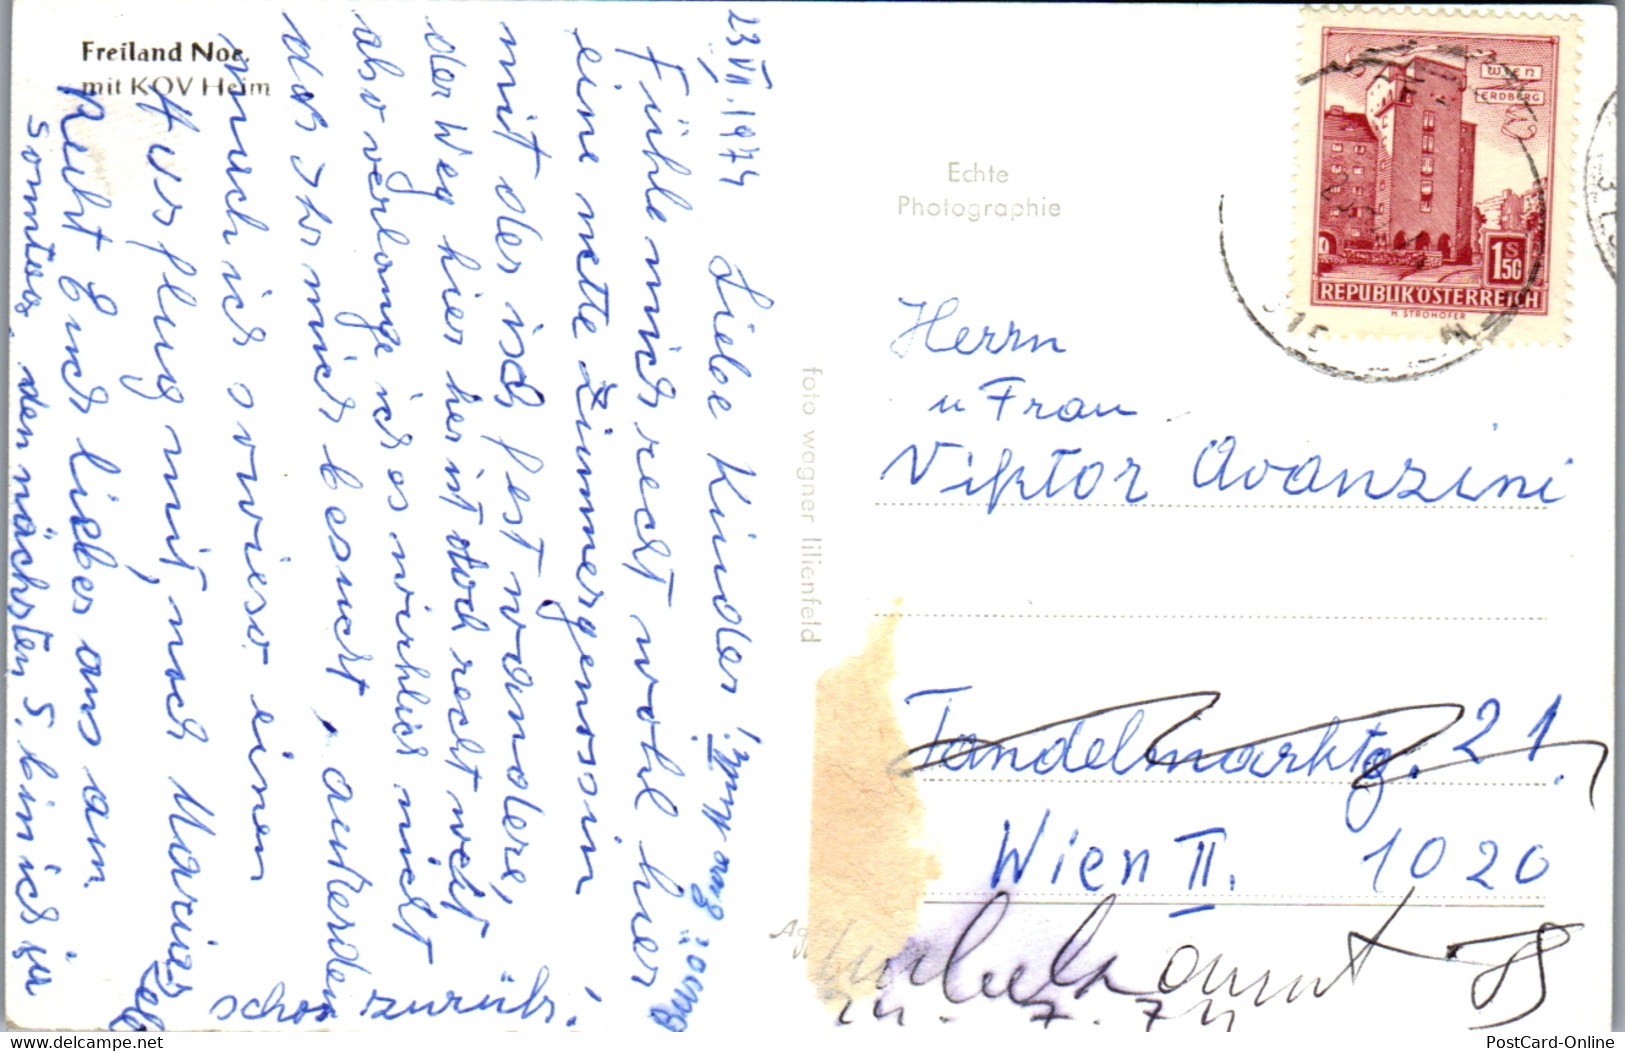 Freiland Noe.
mit KOV Heim
23. VII. 1974
Liebe Kinder!
Fühle mich recht wohl hier
eine nette Zimmergenossin
mit der ich fest wandere,
der Weg hier her ist doch recht weit
also verlange ich es wirklich nicht
das Ihr mich besucht, außerdem
mach ich sowieso einen
Ausflug mit, nach Mariazell
Ruht Euch lieber aus am
Sonntag, den nächsten S. bin ich ja
schon zurück.
Echte
Photographie
foto wagner lilienfeld
WIEN
ERDBERG
1S
50
REPUBLIK ÖSTERREICH
H. STROHOFER
Herrn
u Frau
Viktor Avanzini
Tandelmarktg. 21.
Wien II. 1020
24. 7. 74
PostCard-Online